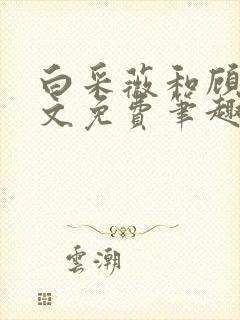 白采薇和顾
文免费笔趣
雲潮